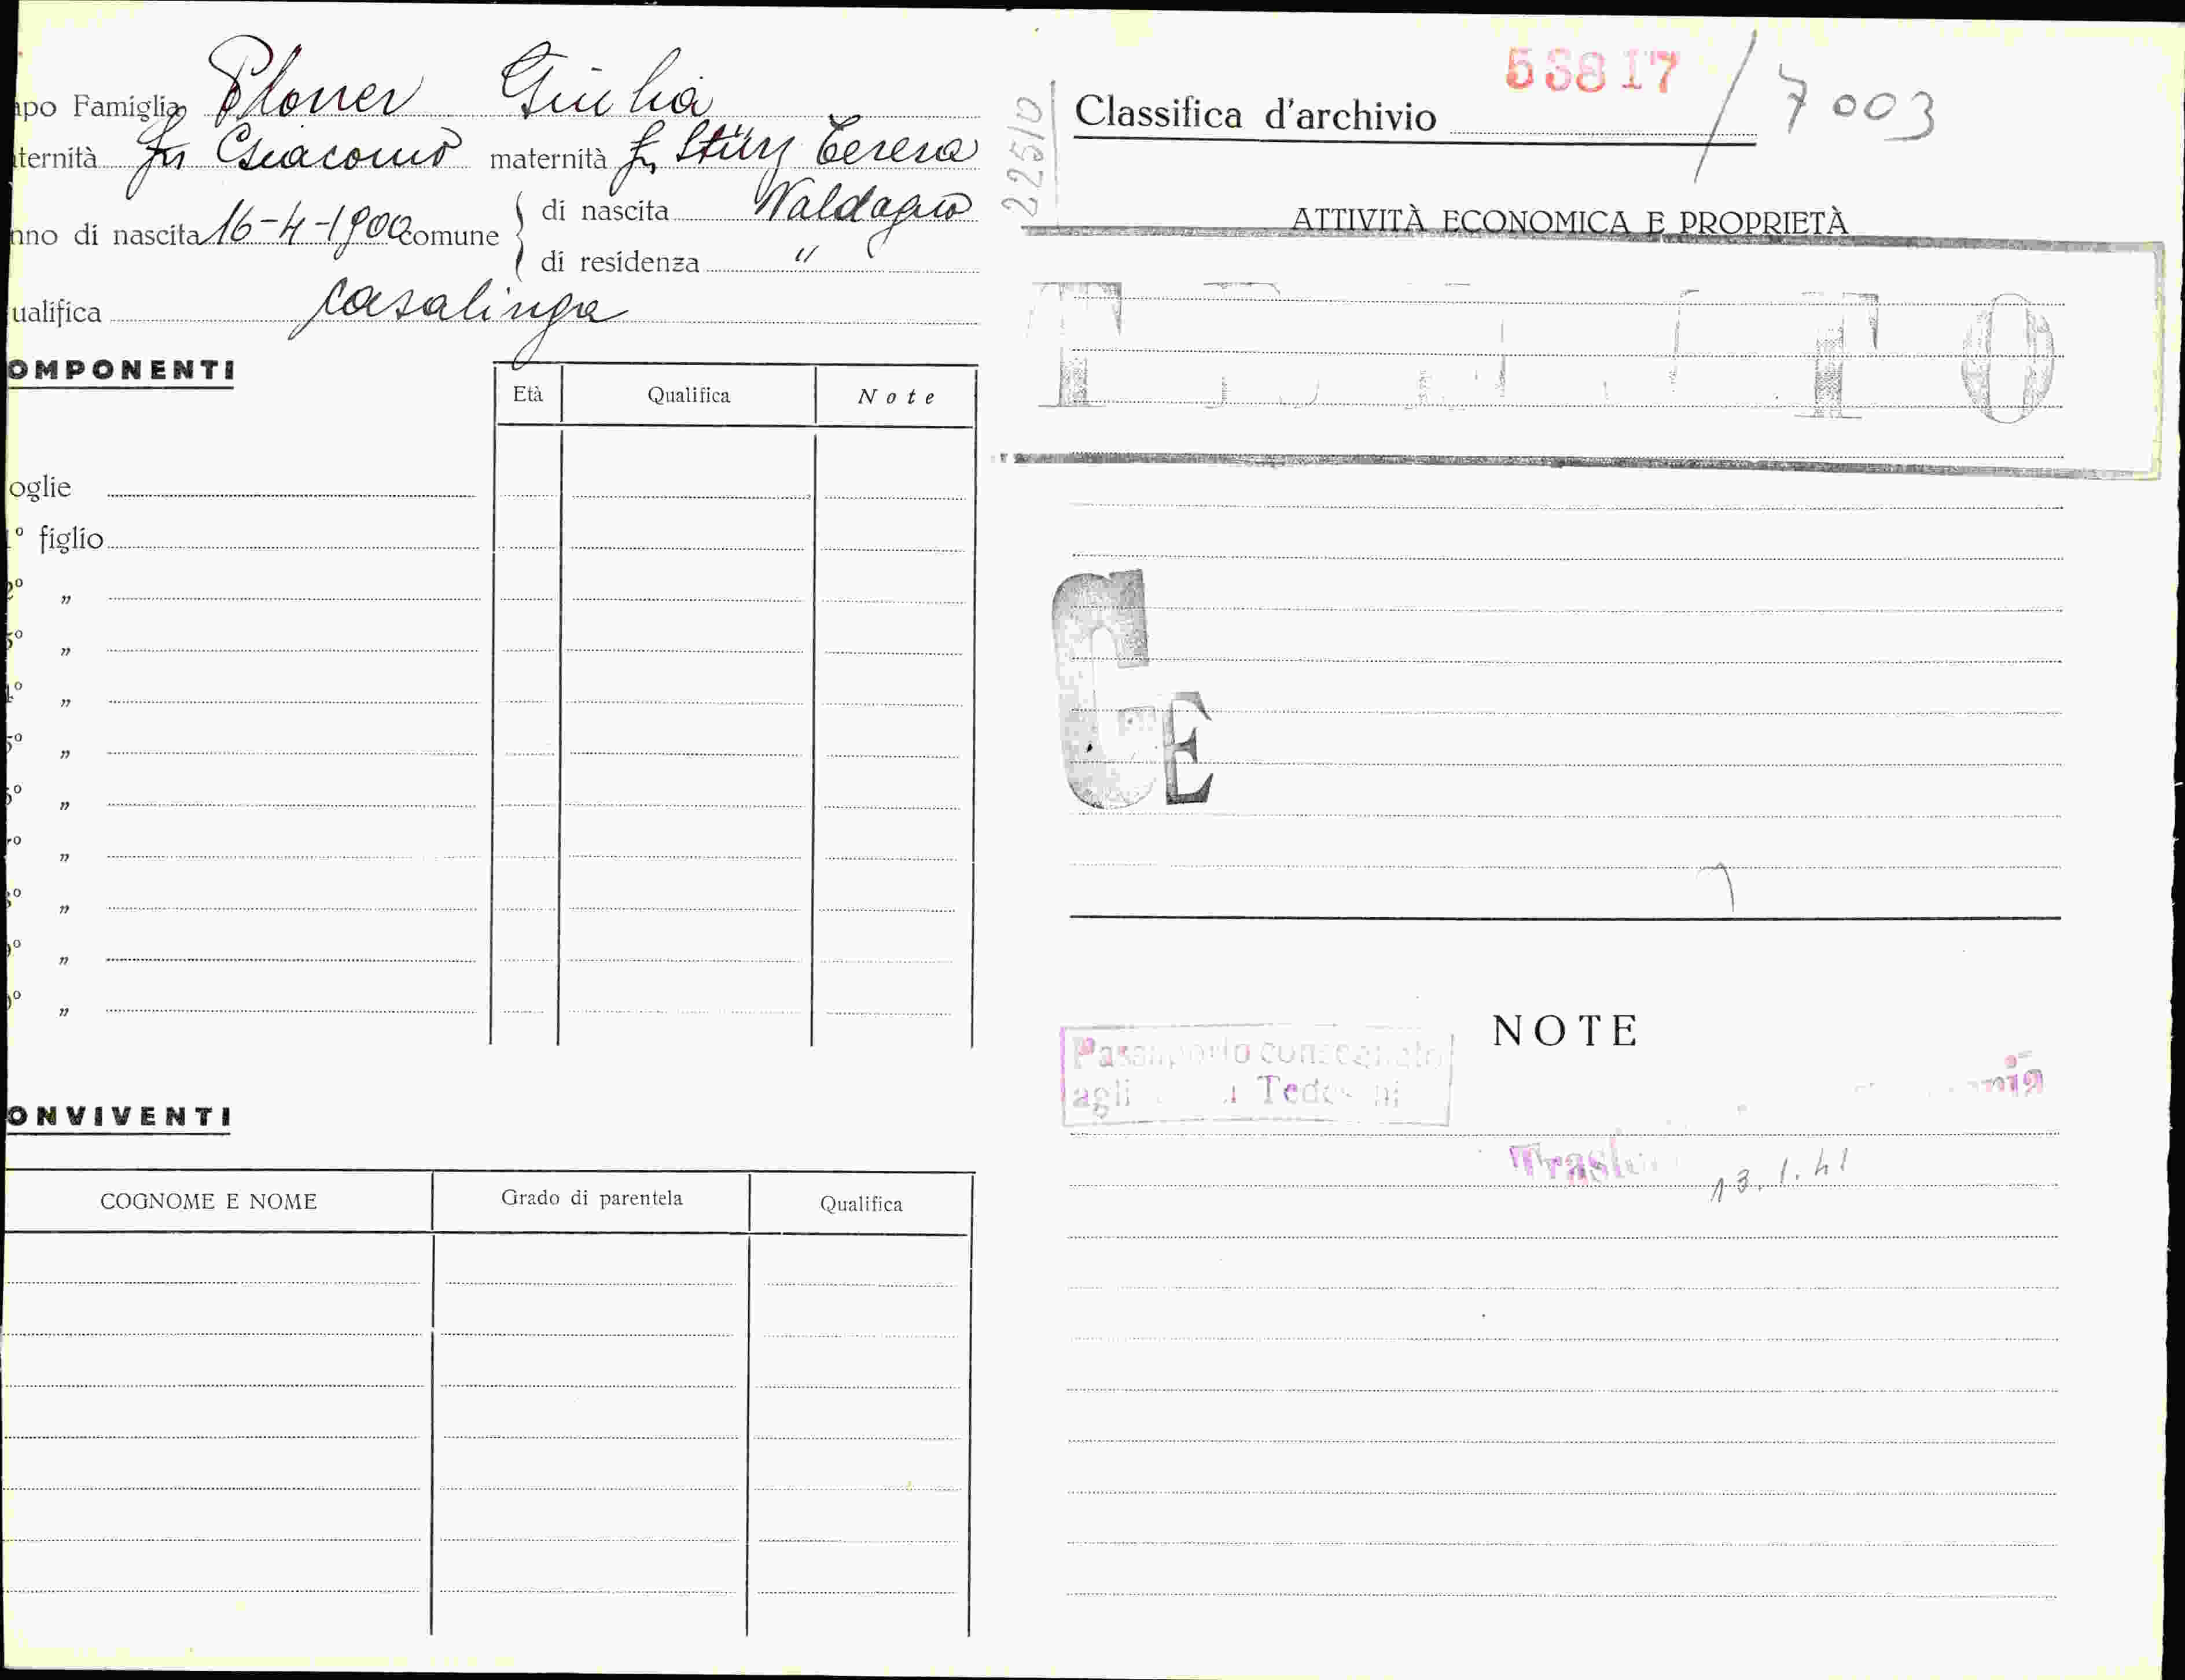 apo Famiglia Ploner Giulia
ternità fu Giacomo maternità fu Stüz Teresa
nno di nascita 16-4-1900 comune di nascita Valdagno
di residenza "
ualifica casalinga
OMPONENTI
Età Qualifica Note
oglie
1° figlio
2° "
3° "
4° "
5° "
6° "
7° "
8° "
9° "
0° "
ONVIVENTI
COGNOME E NOME Grado di parentela Qualifica
2251/0
Classifica d'archivio 53817 / 7003
ATTIVITÀ ECONOMICA E PROPRIETÀ
G E
NOTE
Passaporto consegnato
agli Tedeschi
13.1.41